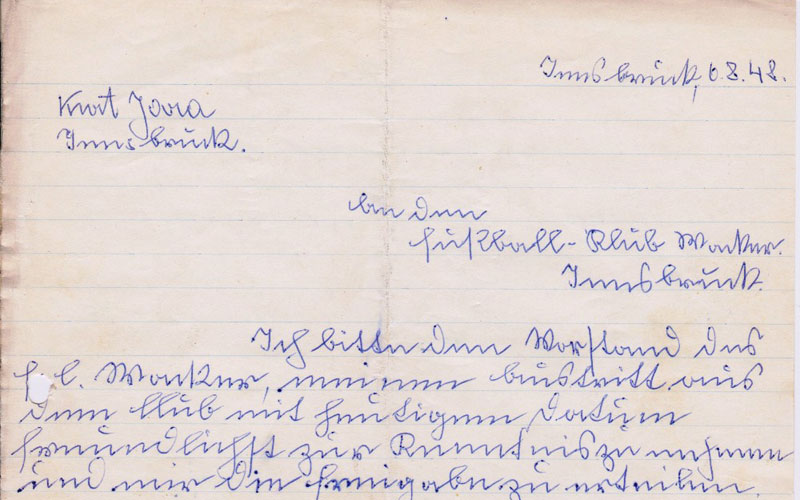 Innsbruck, 6.8.48.
Kurt Jaara
Innsbruck.
An den
Fußball-Klub Wacker.
Innsbruck.
Ich bitte den Vorstand des
F. C. Wacker, meinen Austritt aus
dem Club mit heutigem Datum
freundlichst zur Kenntnis zu nehmen
und mir die Freigabe zu erteilen.